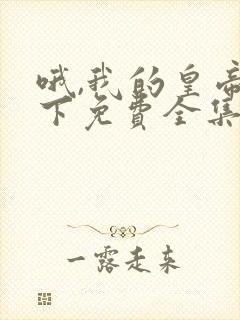 哦,我的皇帝
下免费全集
一露走来